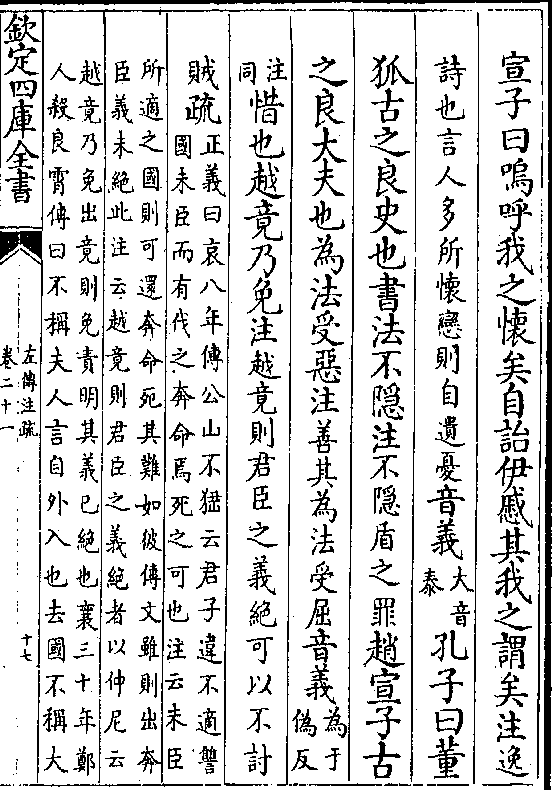 宣子曰嗚呼我之懷矣自詒伊慼其我之謂矣注逸
詩也言人多所懷戀則自遺憂音義大音泰孔子曰董
狐古之良史也書法不隠注不隠盾之罪趙宣子古
之良大夫也為法受惡注善其為法受屈音義為于偽反
注同惜也越竟乃免注越竟則君臣之義絶可以不討
賊疏正義曰哀八年傳公山不狃云君子違不適讐
國未臣而有伐之奔命焉死之可也注云未臣
所適之國則可還奔命死其難如彼傳文雖則出奔
臣義未絶此注云越竟則君臣之義絶者以仲尼云
越竟乃免出竟則免責明其義已絶也襄三十年鄭
人殺良霄傳曰不稱夫人言自外入也去國不稱大
欽定四庫全書
左傳注疏
卷二十一
十七